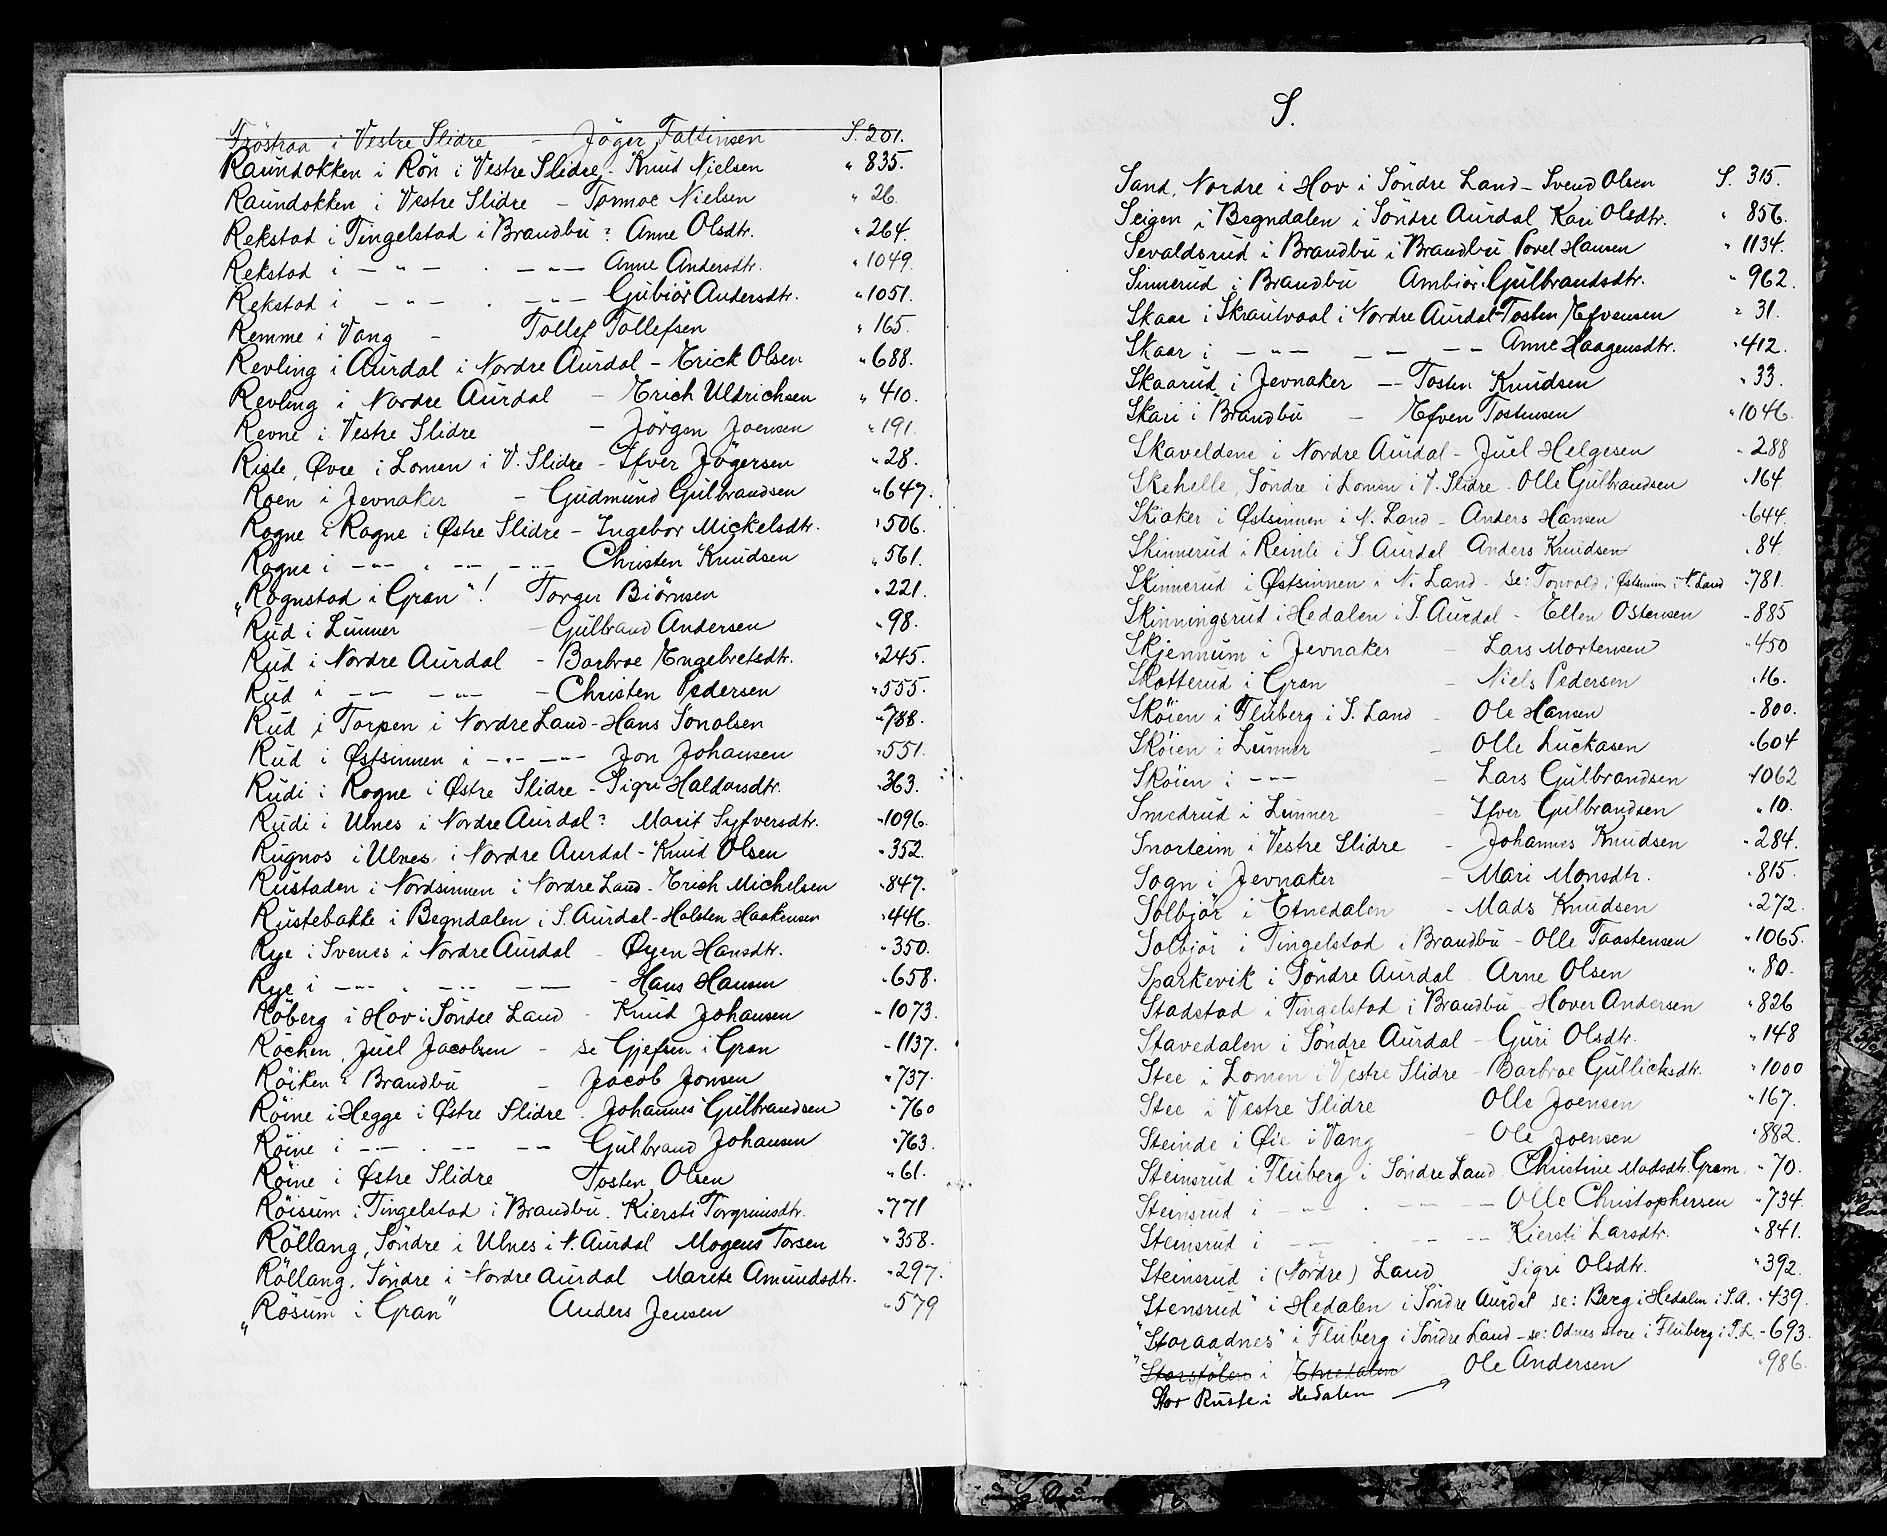 Fröstraa i Vestre Slidre - Jöger Fattinsen S. 201.
Raundokken i Røn i Vestre Slidre, - Knud Nielsen " 835.
Raundokken i Vestre Slidre - Tormoe Nielsen " 26.
Rekstad i Tingelstad i Brandbu? Anne Olsdtr. " 264.
Rekstad i - " - . - - - Anne Andersdtr. " 1049.
Rekstad i - " - . - - - Gubiör Andersdtr. " 1051.
Remme i Vang - Tollef Tollefsen " 165.
Revling i Aurdal i Nordre Aurdal - Erick Olsen " 688.
Revling i Nordre Aurdal - Erich Uldrichsen " 410.
Revne i Vestre Slidre - Jörgen Joensen " 191.
Riste, Øvre i Lomen i V. Slidre - Ifver Jögersen " 28.
Roen i Jevnaker - Gudmund Gulbrandsen " 647.
Rogne i Rogne i Østre Slidre - Ingebor Mickelsdtr. " 506.
Rogne i - " - . - " - . - " - Christen Knudsen " 561.
"Rognstad i Gran"! Torger Biörnsen " 221.
Rud i Lunner - Gulbrand Andersen " 98.
Rud i Nordre Aurdal - Barbroe Engebretsdtr. " 245.
Rud i - " - - " - - Christen Pedersen " 555.
Rud i Torpen i Nordre Land - Hans Simolsen " 788.
Rud i Østsinnen i - " - - " - Jon Johansen " 551.
Rudi i Rogne i Østre Slidre - Sigri Haldorsdtr. " 363.
Rudi i Ulnes i Nordre Aurdal? Marit Syfversdtr. " 1096.
Rugnos i Ulnes i Nordre Aurdal - Knud Olsen " 352.
Rustaden i Nordsinnen i Nordre Land - Erich Michelsen " 847.
Rustebakke i Begndalen i S. Aurdal - Holsten Haakensen " 446.
Rye i Svenes i Nordre Aurdal - Øyen Hansdtr. " 350.
Rye i - " - . - " - - " - - Hans Hansen " 658.
Röberg i Hov i Söndre Land - Knud Johansen " 1073.
Röchen, Juel Jacobsen - se Gjefsen i Gran " 1137.
Röiken? Brandbu - Jacob Jonsen " 737.
Röine i Hegge i Østre Slidre. Johannes Gulbrandsen " 760
Röine i - " - . - " - - - Gulbrand Johansen " 763.
Röine i Østre Slidre Tosten Olsen " 61.
Röisum i Tingelstad i Brandbu. Kiersti Torgrimsdtr. " 771
Röllang, Söndre i Ulnes i N. Aurdal Mogens Torsen " 358.
Röllang, Söndre i Nordre Aurdal Marete Amundsdtr. " 297.
"Rösum i Gran" Anders Jensen " 579
S.
Sand, Nordre i Hov i Söndre Land - Svend Olsen S. 315.
Seigen i Begndalen i Söndre Aurdal Kari Olsdtr. " 856.
Sevaldsrud i Brandbu i Brandbu Povel Hansen " 1134.
Sinnerud i Brandbu Ambiör Gulbrandsdtr. " 962.
Skaar i Skrautvaal i Nordre Aurdal - Tosten Efvensen " 31.
Skaar i - " - - - - - Anne Haagensdtr. " 412.
Skaarud i Jevnaker - Tosten Knudsen " 33.
Skari i Brandbu - Efven Tostensen " 1046.
Skaveldene i Nordre Aurdal - Juel Helgesen " 288
Skehelle, Söndre i Lomen i V. Slidre. Olle Gulbrandsen " 164
Skiaker i Østsinnen i N. Land - Anders Hansen " 644.
Skinnerud i Reinli i S. Aurdal Anders Knudsen " 84.
Skinnerud i Østsinnen i N. Land - se: Tonvold i Østsinnen i N. Land " 781.
Skinningsrud i Hedalen i S. Aurdal - Ellen Ostensen " 885
Skjennum i Jevnaker - Lars Mortensen " 450
Skotterud i Gran - Niels Pedersen " 16.
Sköien i Fluberg i S. Land - Ole Hansen " 800.
Sköien i Lunner - Olle Luckasen " 604
Sköien i - " - - Lars Gulbrandsen " 1062
Smedrud i Lunner - Ifver Gulbrandsen " 10.
Snorteim i Vestre Slidre - Johannes Knudsen " 284.
Sogn i Jevnaker - Mari Monsdtr. " 815.
Solbjör i Etnedalen - Mads Knudsen " 272.
Solbjör i Tingelstad i Brandbu - Olle Taastensen " 1065.
Sparkevik i Söndre Aurdal Arne Olsen " 80.
Stadstad i Tingelstad i Brandbu - Hover Andersen " 826
Stavedalen i Söndre Aurdal - Guri Olsdtr. " 148
Stee i Lomen i Vestre Slidre - Barbroe Gullicksdtr. " 1000
Stee i Vestre Slidre Olle Joensen " 167.
Steinde i Øie i Vang - Ole Joensen " 882.
Steinsrud i Fluberg i Söndre Land. Christine Madsdtr. Gram, " 70.
Steinsrud i - " - . - - - Olle Christophersen " 734.
Steinsrud i - " - . - - - Kiersti Larsdtr. " 841.
Steinsrud i (Nordre) Land Sigri Olsdtr. " 392.
"Stensrud" i Hedalen i Söndre Aurdal se: Berg i Hedalen i S.A. " 439.
"Storaadnes" i Fluberg i Söndre Land - se: Odnes store i Fluberg i S.L. " 693.
"Storstölen i Etnedalen Ole Andersen " 986.
Stor Ruste i Hedalen